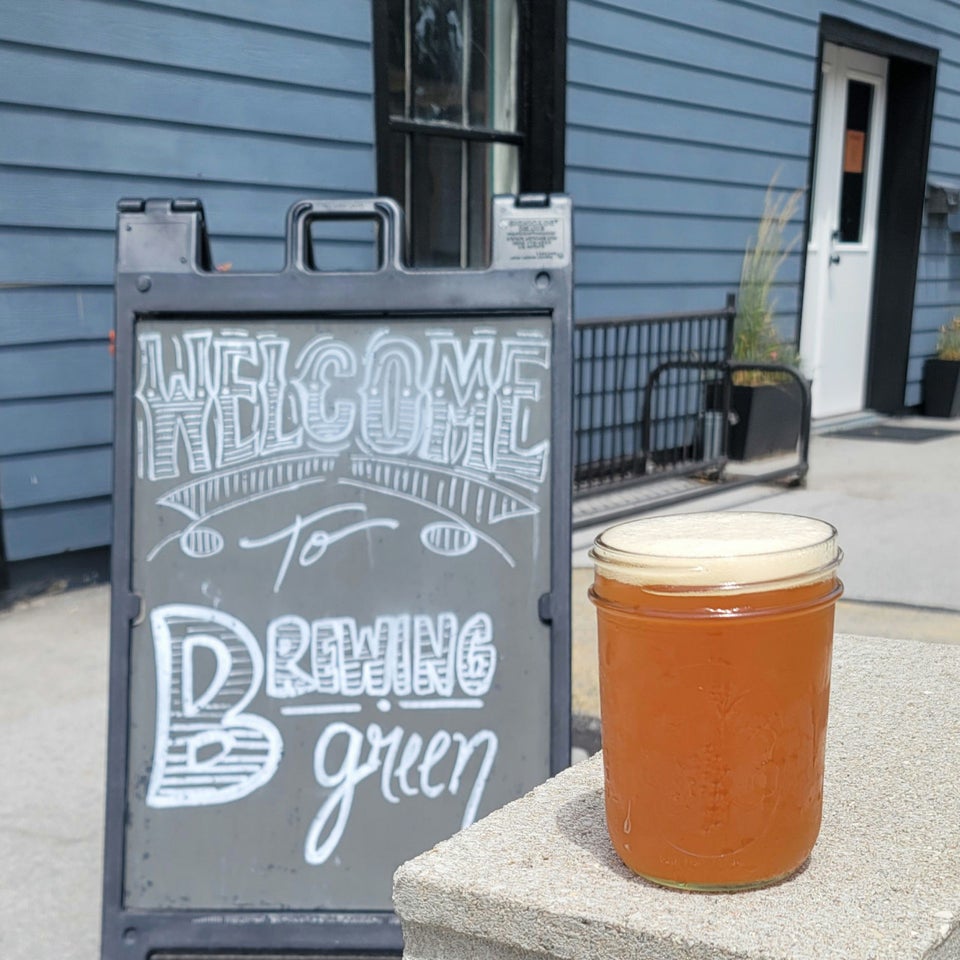 WELCOME
To
BREWING
green